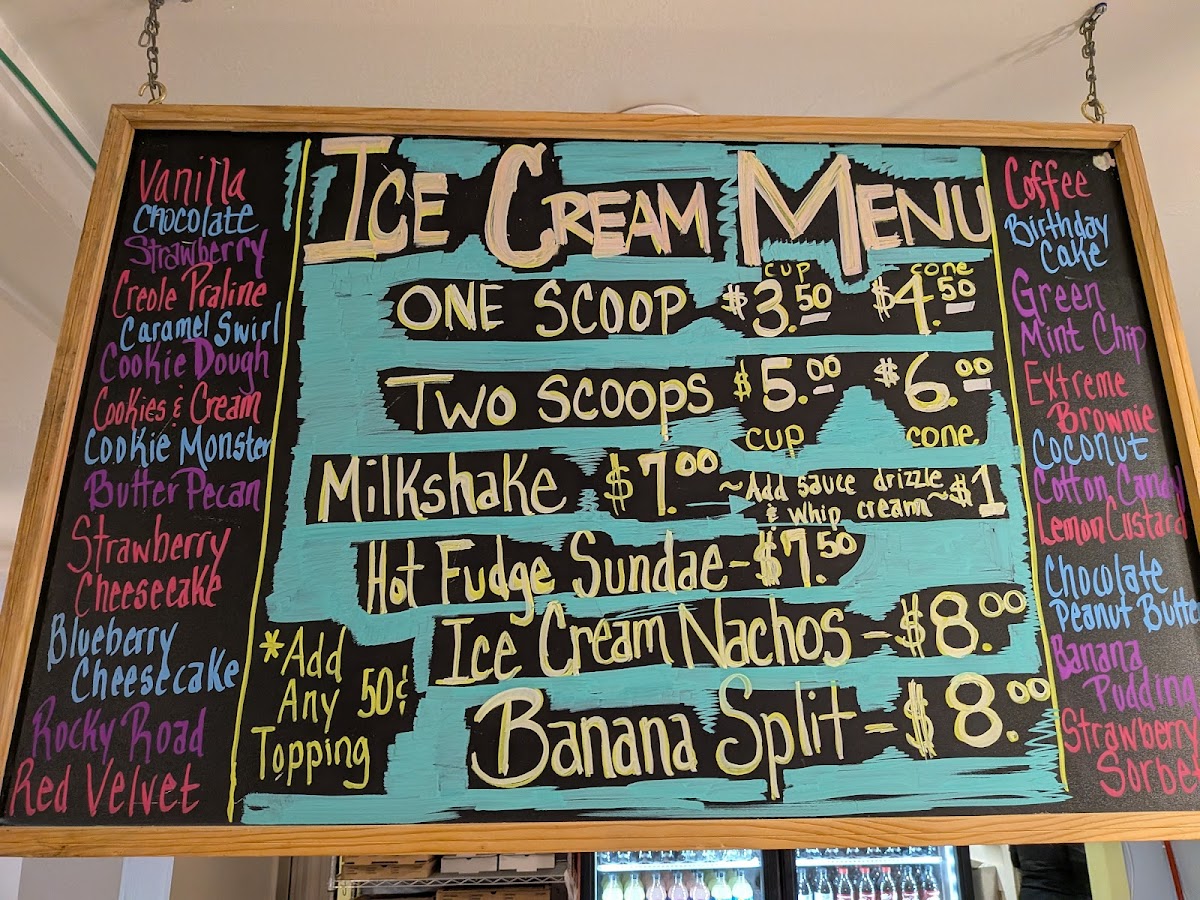 Vanilla
Chocolate
Strawberry
Creole Praline
Caramel Swirl
Cookie Dough
Cookies & Cream
Cookie Monster
Butter Pecan
Strawberry
Cheesecake
Blueberry
Cheesecake
Rocky Road
Red Velvet
ICE CREAM MENU
cup cone
ONE SCOOP $3.50 $4.50
TWO SCOOPS $5.00 $6.00
cup cone
Milkshake $7.00 ~Add sauce drizzle
& whip cream~ $1
Hot Fudge Sundae - $7.50
Ice Cream Nachos - $8.00
Banana Split - $8.00
*Add
Any 50¢
Topping
Coffee
Birthday
Cake
Green
Mint Chip
Extreme
Brownie
Coconut
Cotton Candy
Lemon Custard
Chocolate
Peanut Butte
Banana
Pudding
Strawberry
Sorbe